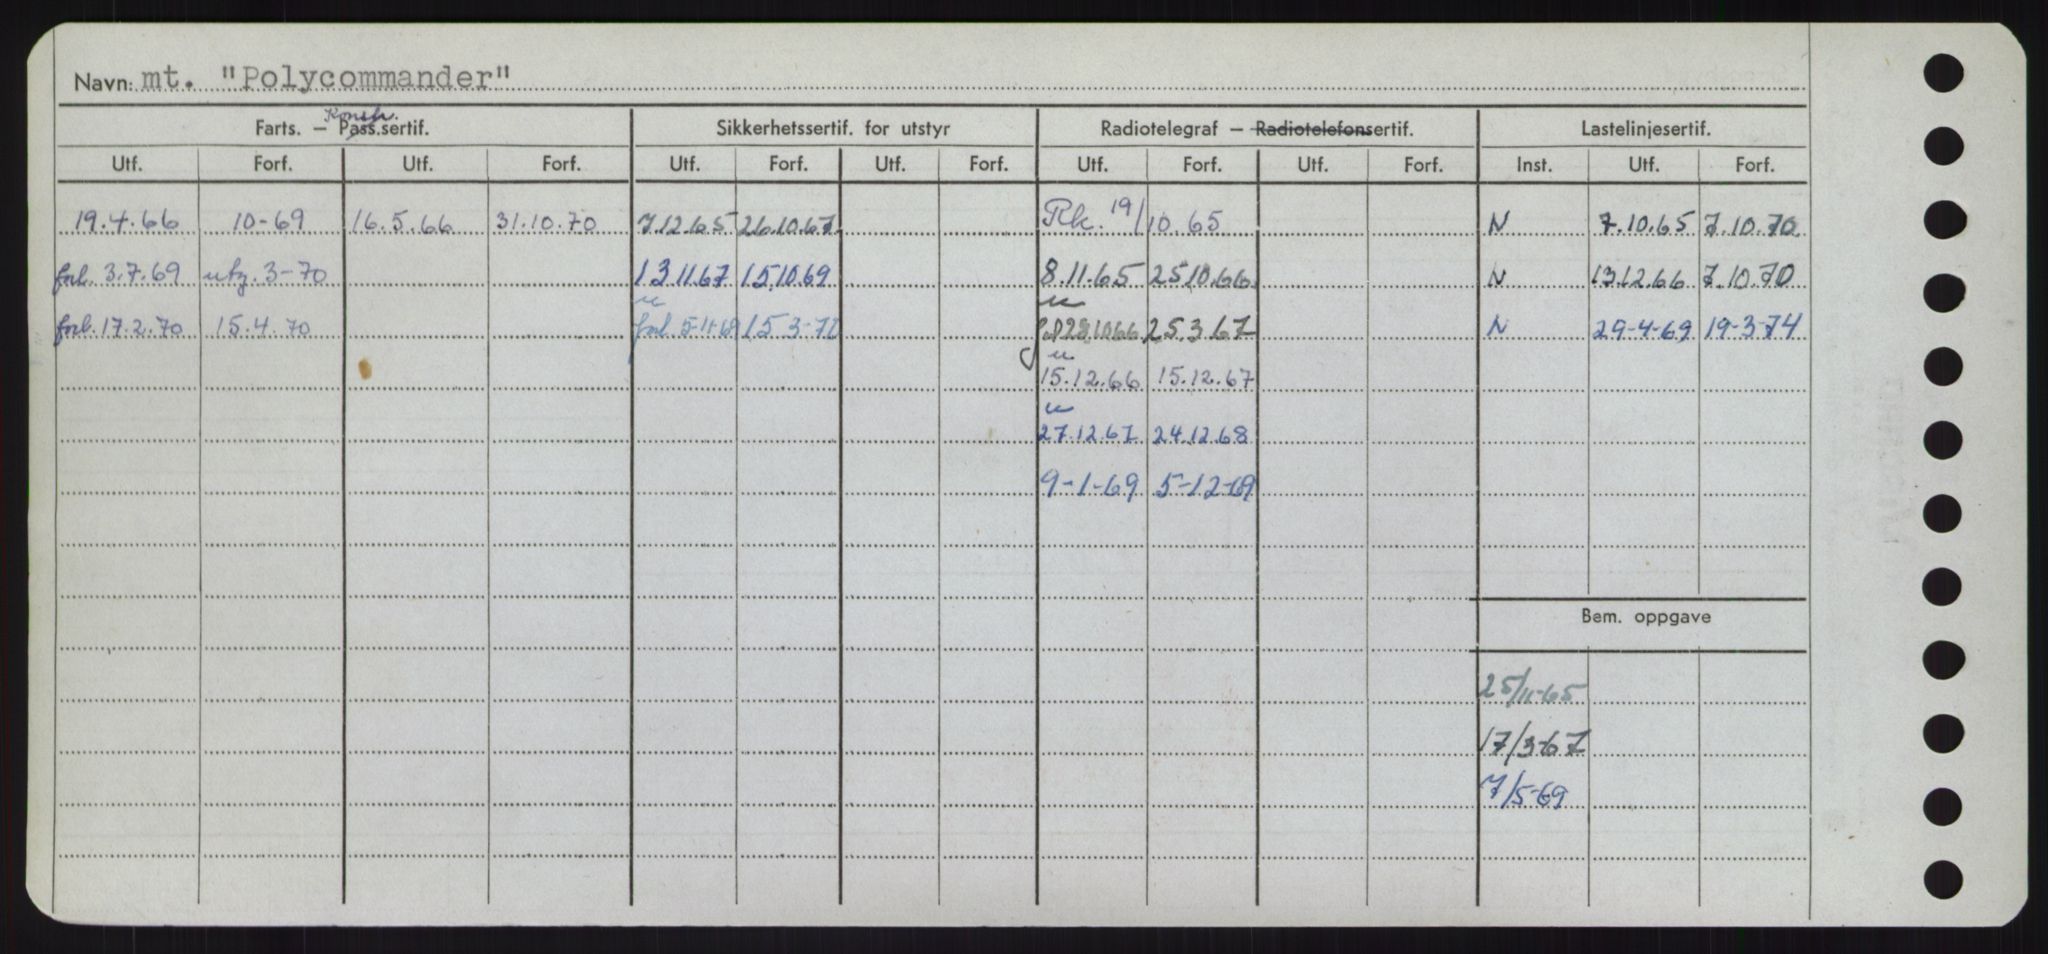 Navn: mt. "Polycommander"
Farts. – Pass.sertif. Konstr. Sikkerhetssertif. for utstyr Radiotelegraf – Radiotelefonsertif. Lastelinjesertif.
Utf. Forf. Utf. Forf. Utf. Forf. Utf. Forf. Utf. Forf. Utf. Forf. Inst. Utf. Forf.
19.4.66 10-69 16.5.66 31.10.70 7.12.65 26.10.67 Rk. 19/10.65 N 7.10.65 7.10.70
forl. 3.7.69 utg. 3-70 13.11.67 15.10.69 8.11.65 25.10.66 N 13.12.66 7.10.70
forl. 17.2.70 15.4.70 forl. 5-11-69 15 3-72 28.10.66 25.3.67 N 29-4-69 19-3-74
15.12.66 15.12.67
27.12.67 24.12.68
9-1-69 5-12-69
Bem. oppgave
25/11-65
17/3-67
7/5-69